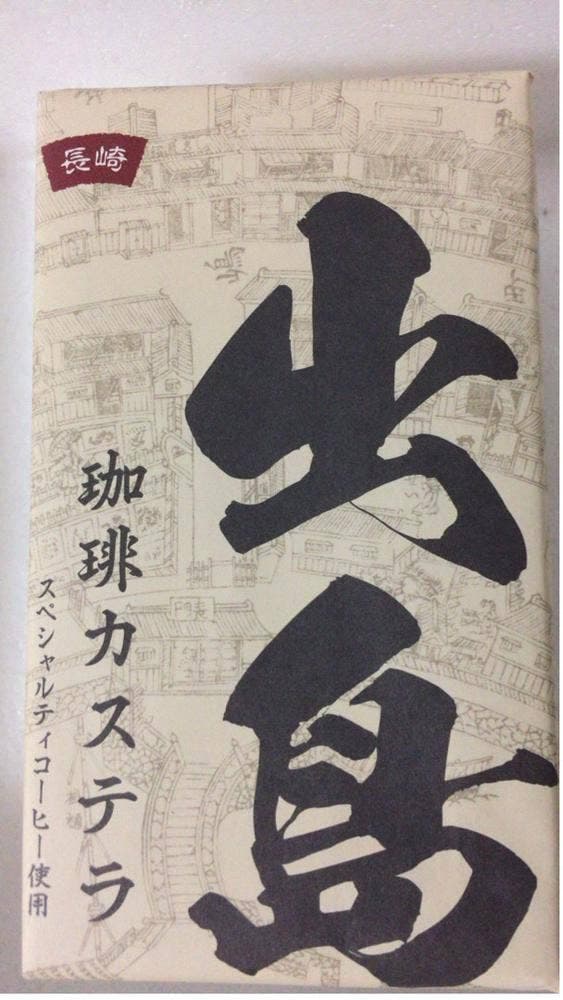 長崎
出島
珈琲カステラ
スペシャルティコーヒー使用